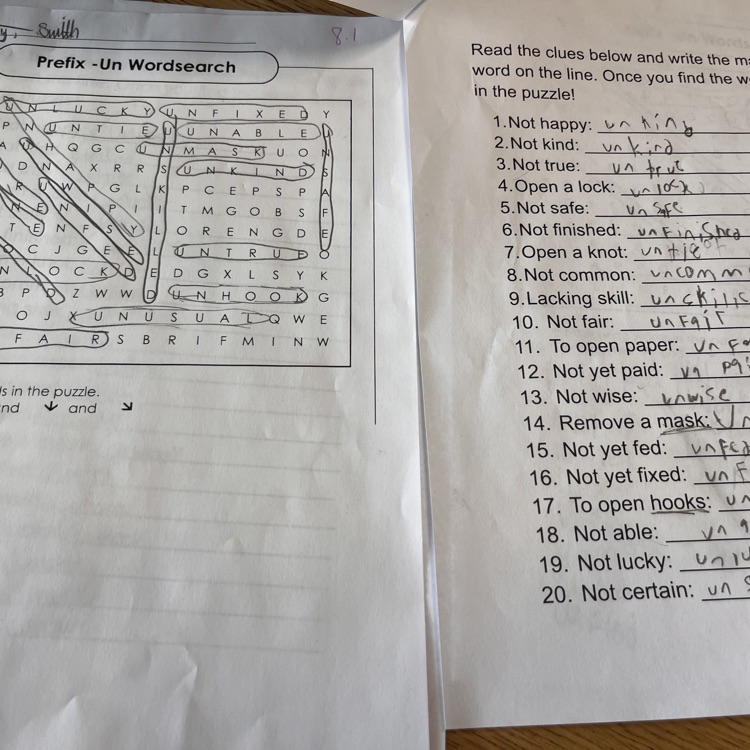 Smith
8.1
Prefix -Un Wordsearch
U N L U C K Y U N F I X E D Y
P N U N T I E U U N A B L E U
U H Q G C U N M A S K U O N
D N A X R R S U N K I N D S
R U W P G L K P C E P S P A
N E N I P I I T M G O B S F
T E N F S Y L O R E N G D E
O C J G E E L U N T R U E O
N L O C K D E D G X L S Y K
B P D Z W W D U N H O O K G
O J X U N U S U A L Q W E
F A I R S B R I F M I N W
in the puzzle.
and
Read the clues below and write the
word on the line. Once you find the
in the puzzle!
1.Not happy:
2.Not kind: un kind
3.Not true: un true
4.Open a lock: un lock
5.Not safe: un safe
6.Not finished: unfinished
7.Open a knot: untie
8.Not common: uncomm
9.Lacking skill:
10. Not fair: unFair
11. To open paper: un Fo
12. Not yet paid: un pai
13. Not wise: unwise
14. Remove a mask: Un
15. Not yet fed: unfed
16. Not yet fixed: un F
17. To open hooks: un
18. Not able: un a
19. Not lucky: unlu
20. Not certain: un s